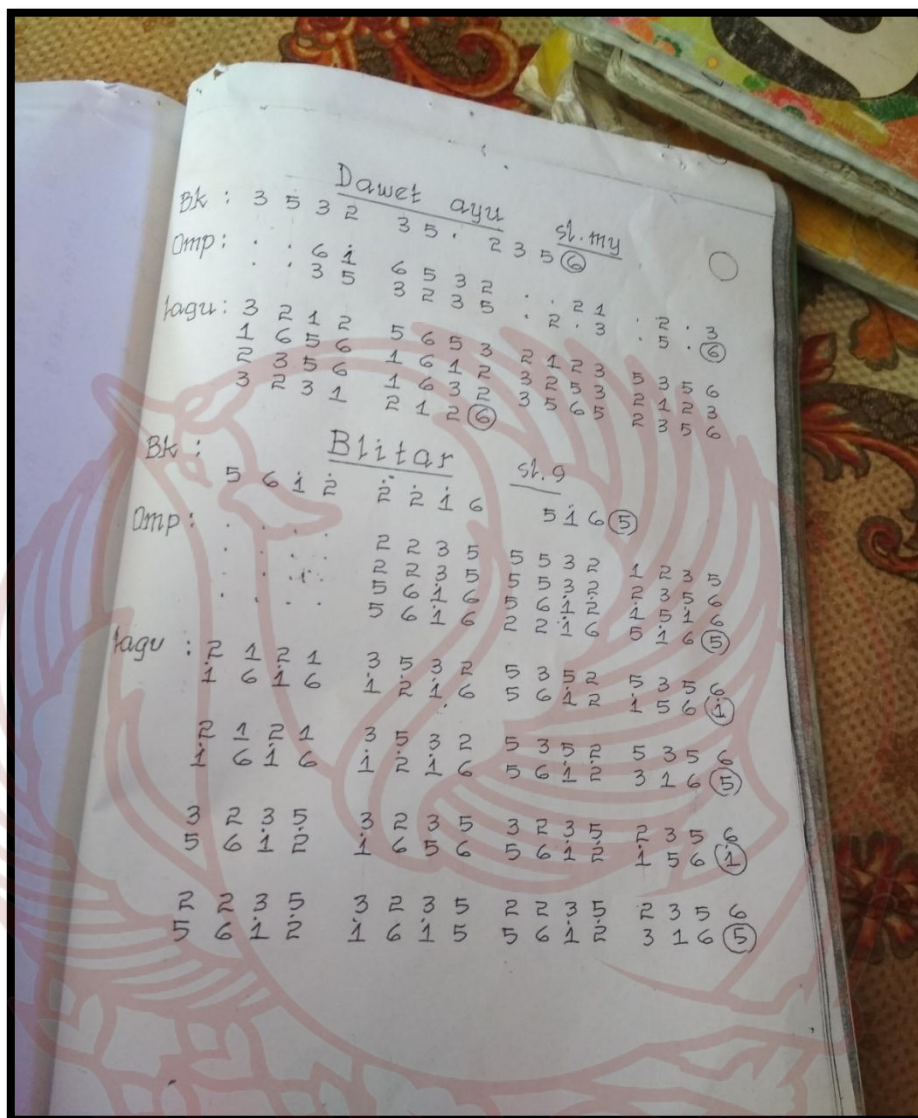 Dawet ayu
sl.my
Bk : 3 5 3 2 3 5 . 2 3 5 (6)
Omp : . . 6 i 6 5 3 2 . . 2 1 . 2 . 3
. . 3 5 3 2 3 5 . 2 . 3 . 5 . (6)
lagu : 3 2 1 2 5 6 5 3 2 1 2 3 5 3 5 6
1 6 5 6 1 6 1 2 3 2 5 3 2 1 2 3
2 3 5 6 1 6 3 2 3 5 6 5 2 3 5 6
3 2 3 1 2 1 2 (6)
Blitar
sl.9
Bk : 5 6 i 2̇ 2̇ 2̇ i 6 5 i 6 (5)
Omp : . . . . 2 2 3 5 5 5 3 2 1 2 3 5
. . . . 2 2 3 5 5 5 3 2 2 3 5 6
. . . . 5 6 i 6 5 6 i 2̇ i 5 i 6
. . . . 5 6 i 6 2̇ 2̇ i 6 5 i 6 (5)
lagu : 2 1 2 1 3 5 3 2 5 3 5 2 5 3 5 6
i 6 i 6 i 2̇ i 6 5 6 i 2̇ i 5 6 (i)
2 1 2 1 3 5 3 2 5 3 5 2 5 3 5 6
i 6 i 6 i 2̇ i 6 5 6 i 2̇ 3 1 6 (5)
3 2 3 5 3 2 3 5 3 2 3 5 2 3 5 6
5 6 i 2̇ i 6 5 6 5 6 i 2̇ i 5 6 (i)
2 2 3 5 3 2 3 5 2 2 3 5 2 3 5 6
5 6 i 2̇ i 6 i 5 5 6 i 2̇ 3 1 6 (5)